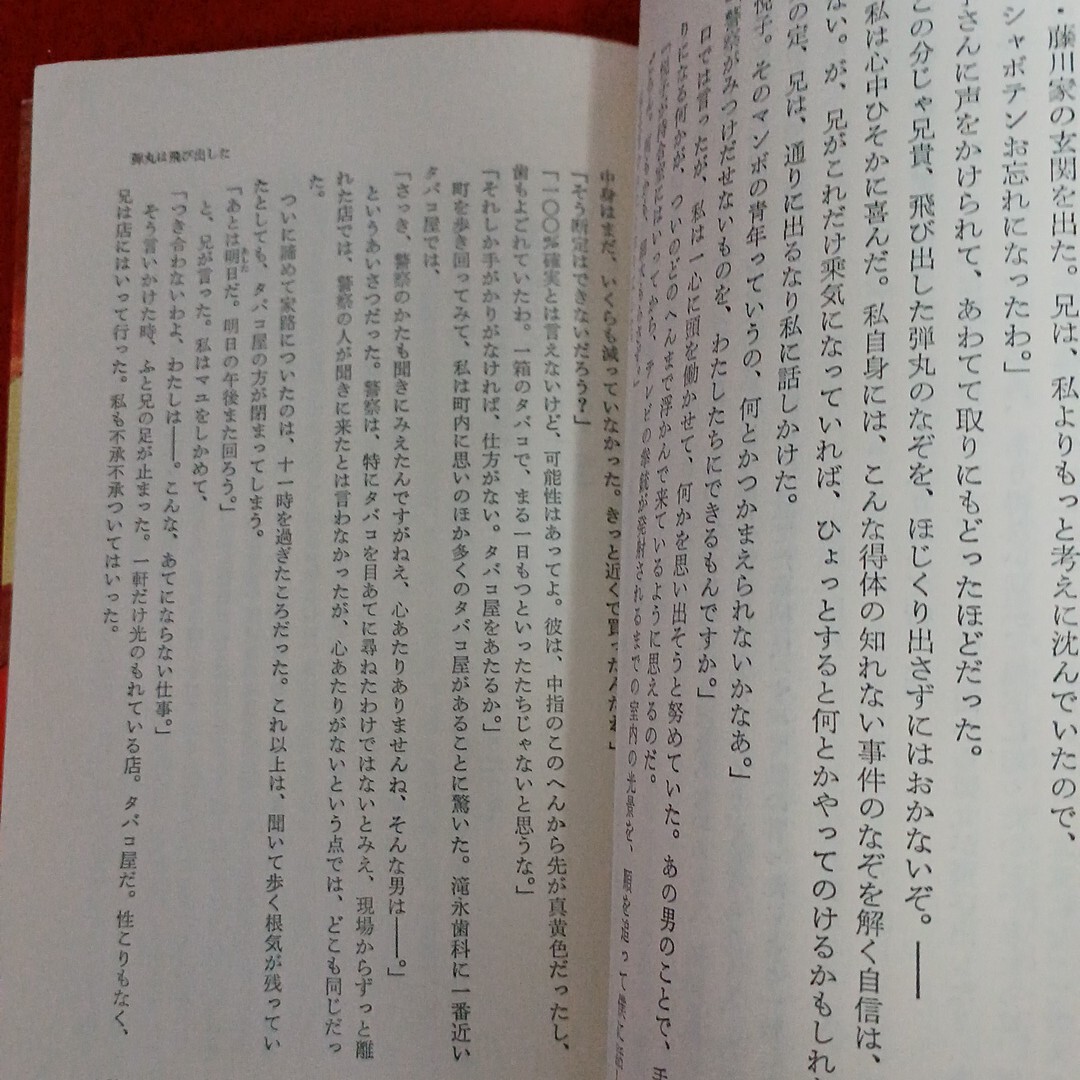 ・藤川家の玄関を出た。兄は、私よりもっと考えに沈んでいたので、
シャボテンお忘れになったわ。」
さんに声をかけられて、あわてて取りにもどったほどだった。
この分じゃ兄貴、飛び出した弾丸のなぞを、ほじくり出さずにはおかないぞ。――
私は心中ひそかに喜んだ。私自身には、こんな得体の知れない事件のなぞを解く自信は、
ない。が、兄がこれだけ乗気になっていれば、ひょっとすると何とかやってのけるかもしれ
の定、兄は、通りに出るなり私に話しかけた。
悦子。そのマンボの青年っていうの、何とかつかまえられないかなあ。」
警察がみつけだせないものを、わたしたちにできるもんですか。」
口では言ったが、私は一心に頭を働かせて、何かを思い出そうと努めていた。あの男のことで、手
りになる何かが、ついのどのへんまで浮かんで来ているように思えるのだ。
はいってから、テレビの拳銃が発射されるまでの室内の光景を、順を追って僕に話
中身はまだ、いくらも減っていなかった。きっと近くで買ったんだわ」
「そう断定はできないだろう？」
「一〇〇％確実とは言えないけど、可能性はあってよ。彼は、中指のこのへんから先が真黄色だったし、
歯もよごれていたわ。一箱のタバコで、まる一日もつといったたちじゃないと思うな。」
「それしか手がかりがなければ、仕方がない。タバコ屋をあたるか。」
町を歩き回ってみて、私は町内に思いのほか多くのタバコ屋があることに驚いた。滝永歯科に一番近い
タバコ屋では、
「さっき、警察のかたも聞きにみえたんですがねえ、心あたりありませんね、そんな男は――。」
というあいさつだった。警察は、特にタバコを目あてに尋ねたわけではないとみえ、現場からずっと離
れた店では、警察の人が聞きに来たとは言わなかったが、心あたりがないという点では、どこも同じだっ
た。
ついに諦めて家路についたのは、十一時を過ぎたころだった。これ以上は、聞いて歩く根気が残ってい
たとしても、タバコ屋の方が閉まってしまう。
「あとは明日だ。明日の午後また回ろう。」
と、兄が言った。私はマユをしかめて、
「つき合わないわよ、わたしは――。こんな、あてにならない仕事。」
そう言いかけた時、ふと兄の足が止まった。一軒だけ光のもれている店。タバコ屋だ。性こりもなく、
兄は店にはいって行った。私も不承不承ついてはいった。
弾丸は飛び出した